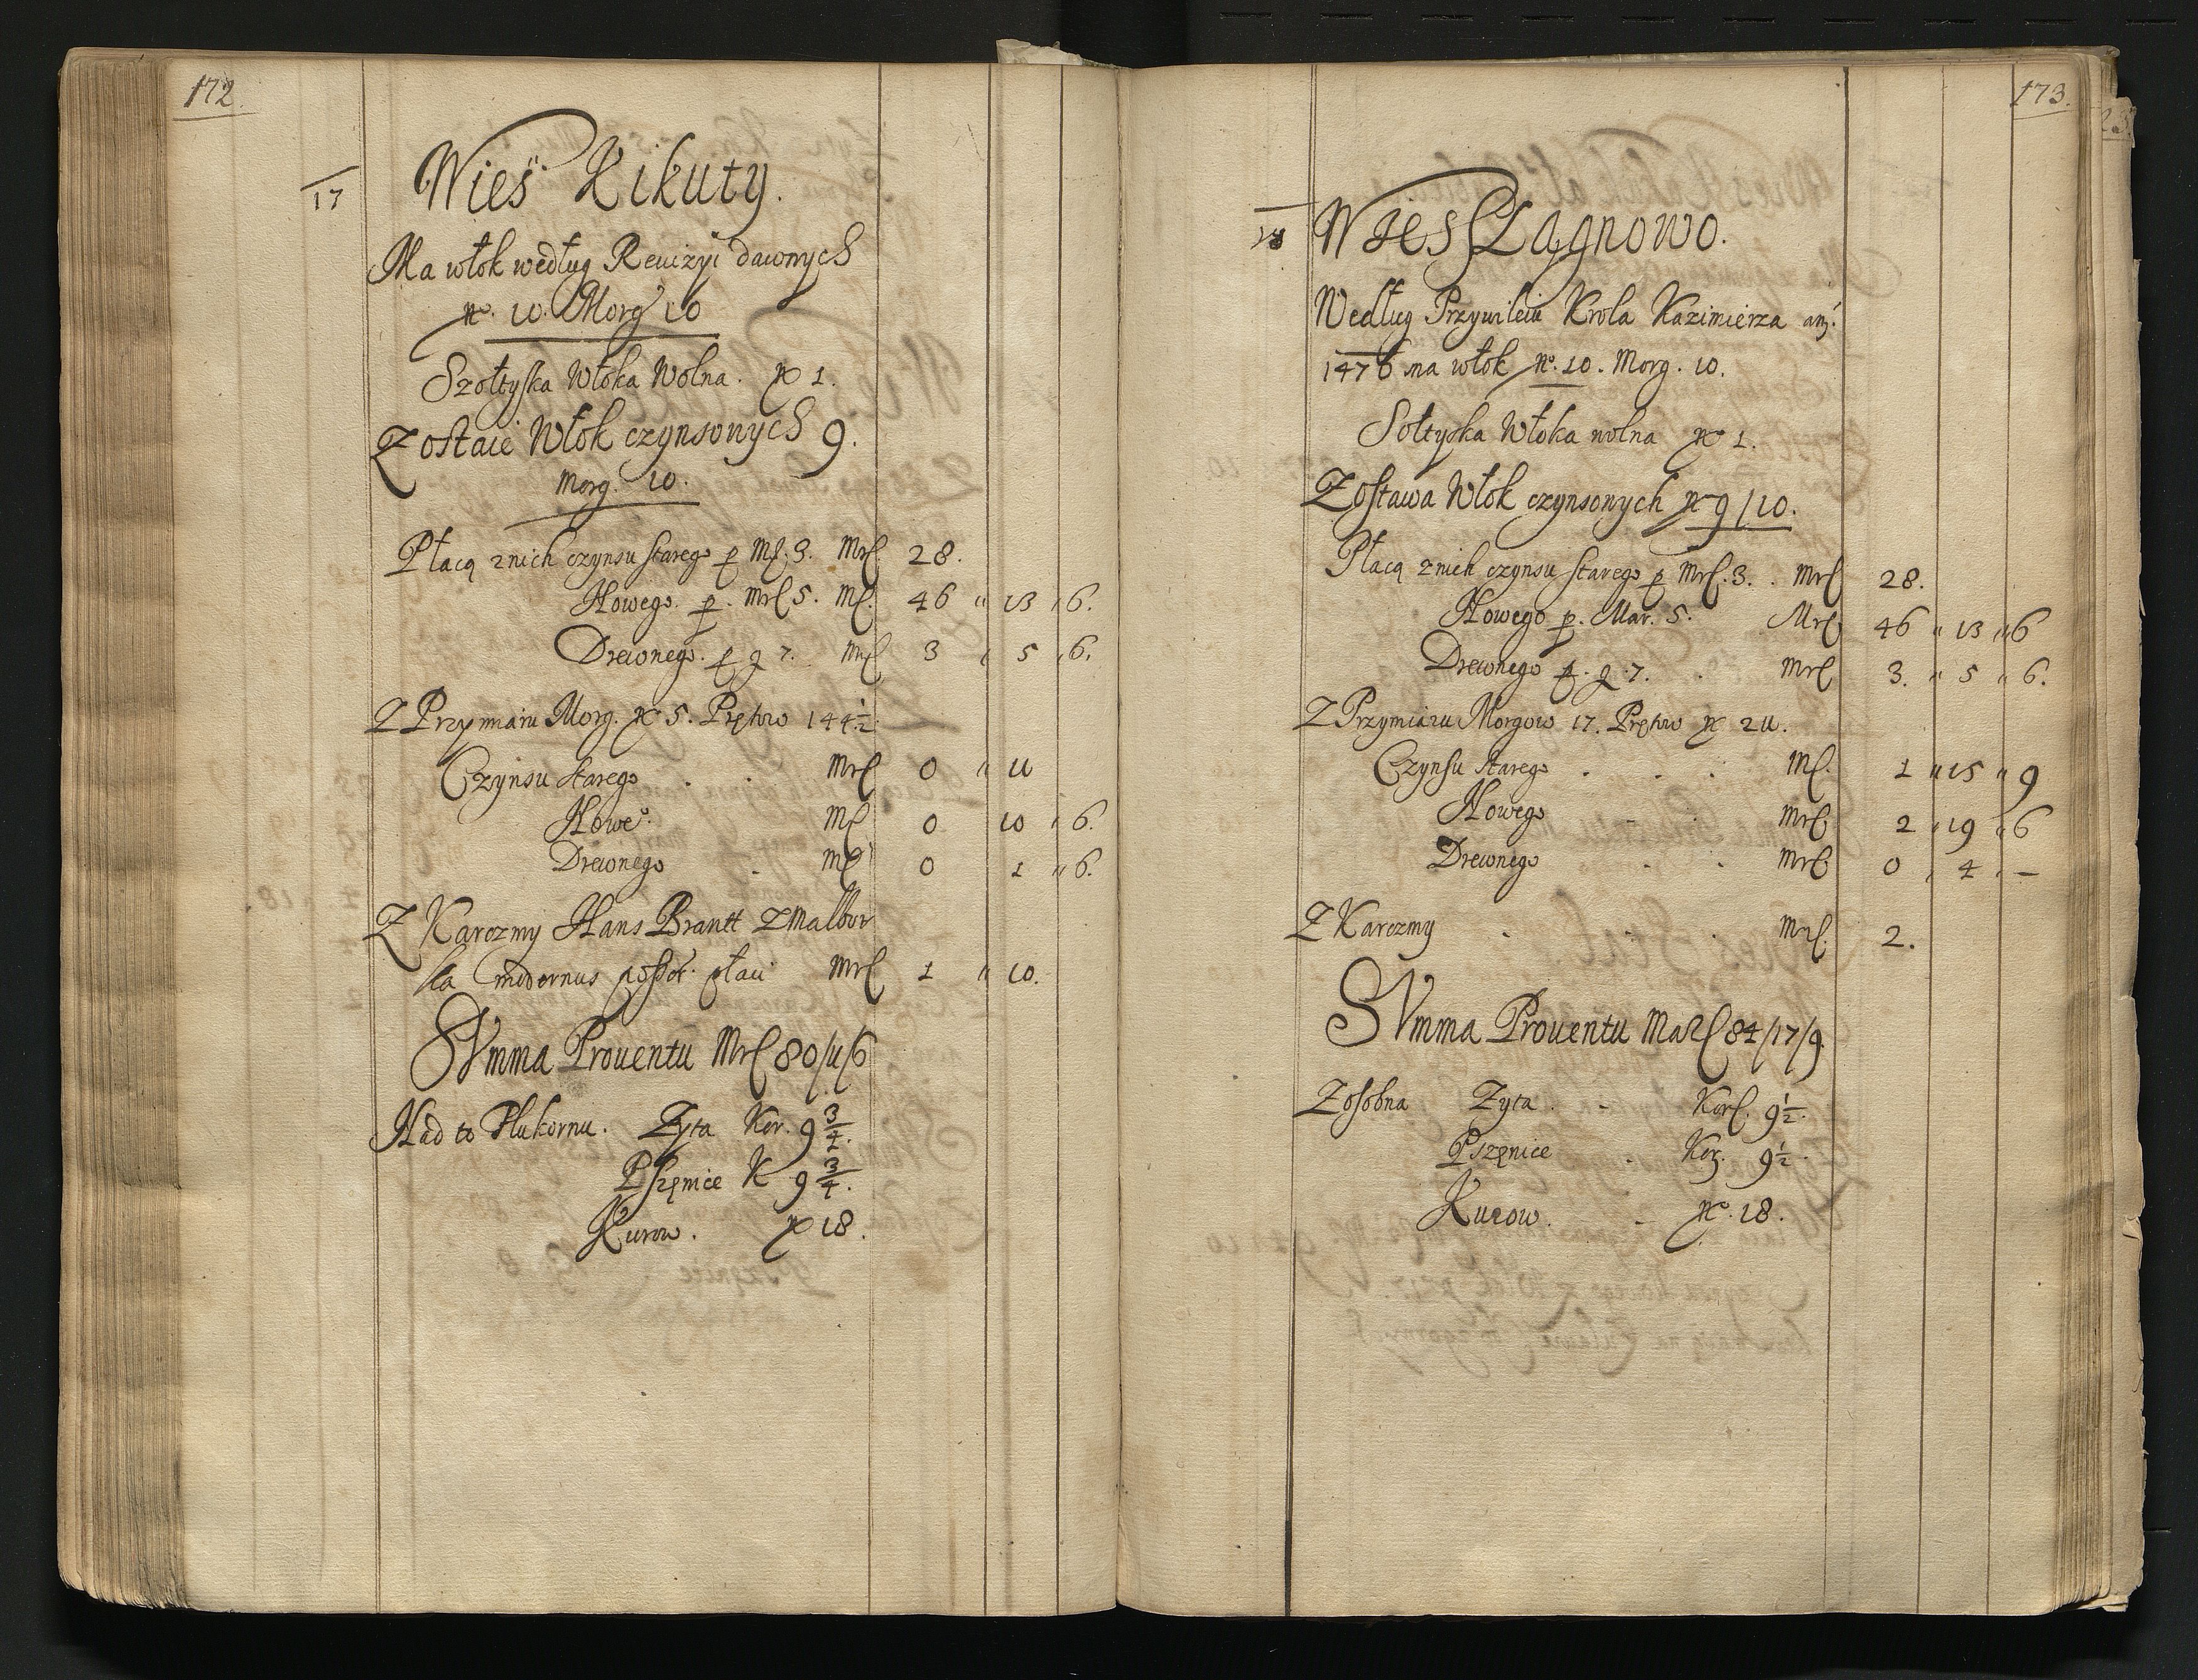 172.
17
Wieś Kikuty.
Ma włok według Rewizyi dawnych
No. 10. Morg 10
Szołtyska Włoka Wolna. No 1.
Zostaie Włok czynsonych 9.
Morg. 10.
Płacą z nich czynsu starego p Mr. 3. Mrc 28.
Nowego. p. Mrc 5. Mr. 46 " 13 " 6.
Drewnego. p g 7. Mrc 3 " 5 " 6.
Z Przymiaru Morg. No 5. Prętow 144 1/2.
Czynsu starego . . Mrc 0 " 11
Nowego. Mr 0 10 " 6.
Drewnego . Mr 0 1 " 6.
Z Karczmy Hans Brantt z Malbor
ka modernus possor. płaci Mrc 1 " 10.
Summa Prouentu Mrc 80/11/6
Nad to Plukornu. Zyta Kor. 9 3/4.
Pszęnice K 9 3/4.
Kurow. No 18.
173.
18
Wies Łągnowo.
Według Przywileiu Krola Kazimierza
1476 ma włok No. 10. Morg. 10.
Sołtyska Włoka wolna No 1.
Zostawa Włok czynsonych No 9/10.
Płacą z nich czynsu starego p Mrc. 3. . Mrc 28.
Nowego p. Mar. 5. Mrc 46 " 13 " 6
Drewnego p. g. 7. . Mrc 3. " 5 " 6.
Z Przymiaru Morgow 17. Prętow No 211.
Czynsu starego . . . Mr. 1 " 15 " 9
Nowego - . Mrc 2 " 19 " 6
Drewnego . . Mrc 0 " 4 " —
Z Karczmy . . . Mrc. 2.
Summa Prouentu Marc 84/17/9.
Zosobna Zyta . - Korc. 9 1/2.
Pszęnice . Kor. 9 1/2.
Kurow. - No. 18.